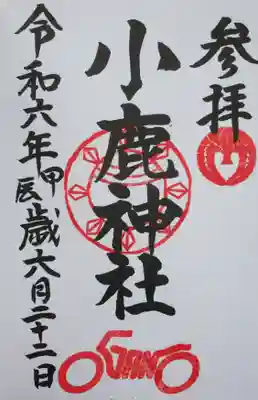 参拝
小鹿神社
令和六年甲辰歳六月二十二日